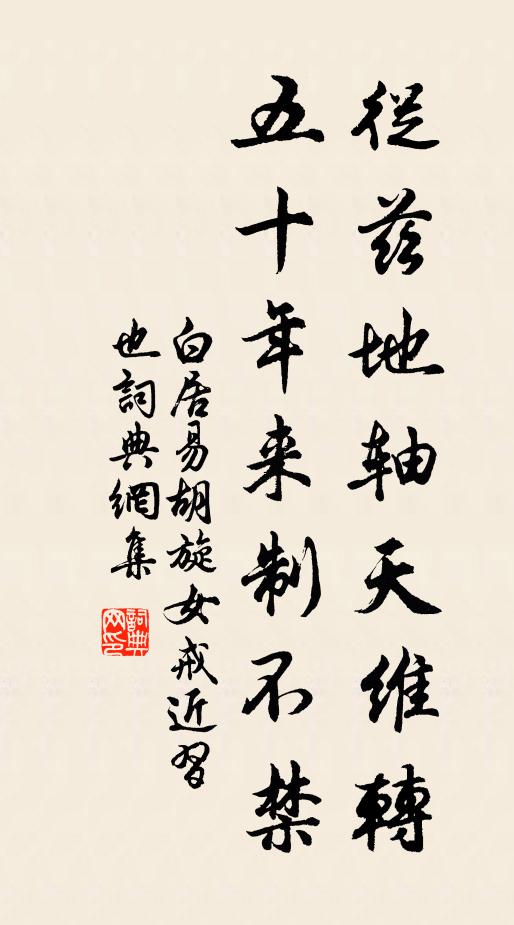 從茲地轴天維轉
五十年来制不禁
白居易胡旋女戒近習
也詞典網集
詞典
网印